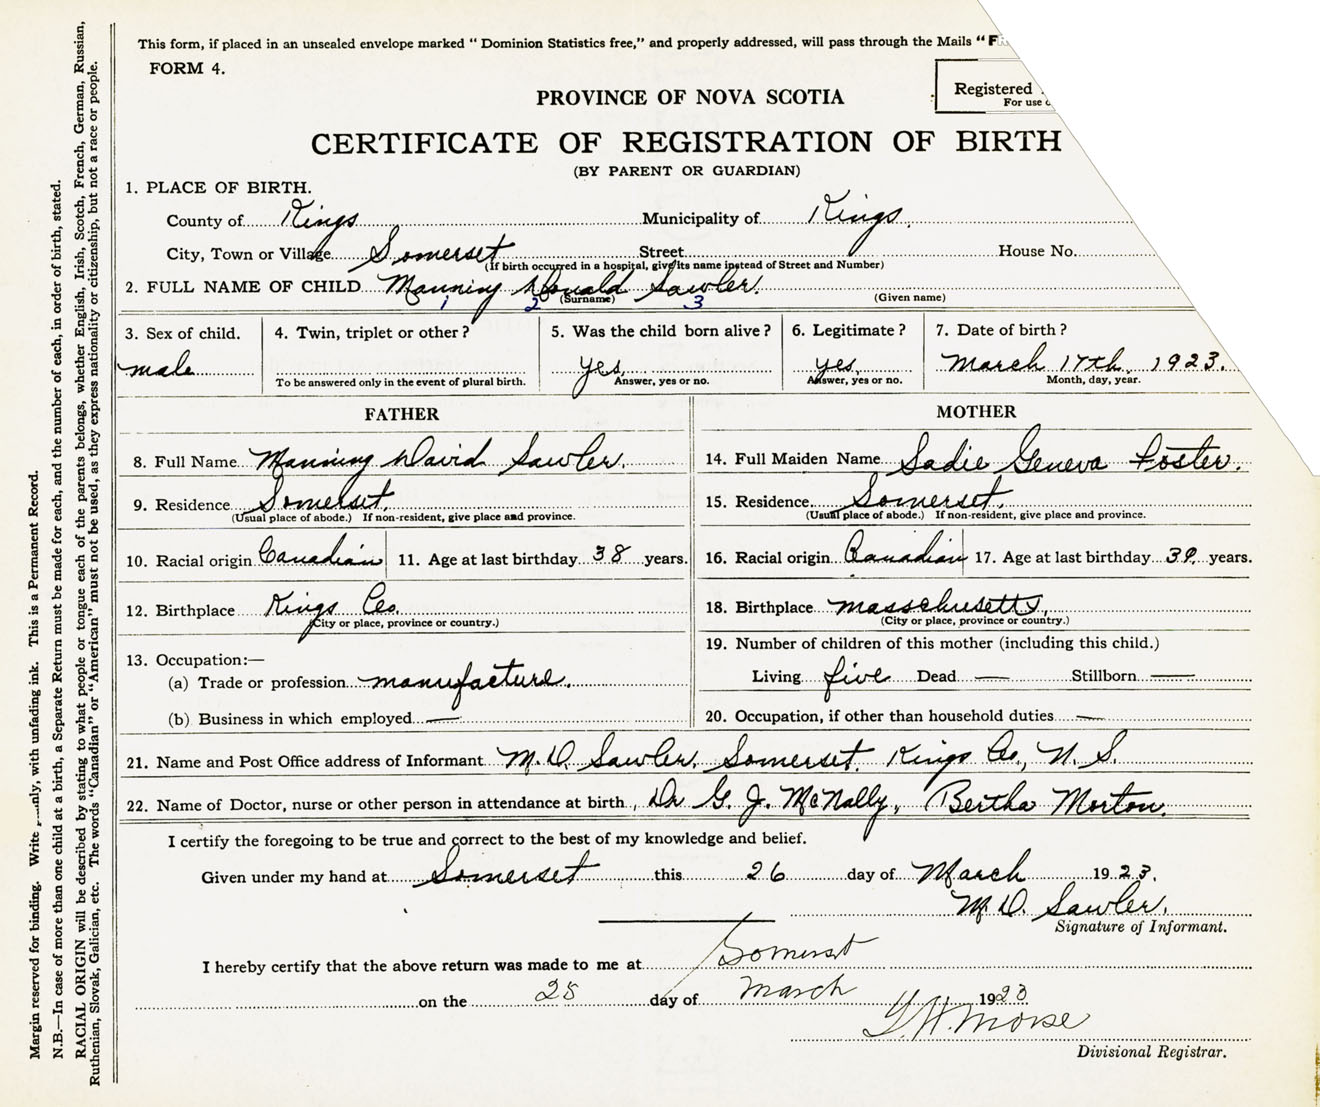 This form, if placed in an unsealed envelope marked "Dominion Statistics free," and properly addressed, will pass through the Mails "F
FORM 4.
Registered
For use
PROVINCE OF NOVA SCOTIA
CERTIFICATE OF REGISTRATION OF BIRTH
(BY PARENT OR GUARDIAN)
1. PLACE OF BIRTH.
County of Kings Municipality of Kings.
City, Town or Village Somerset Street House No.
(If birth occurred in a hospital, give its name instead of Street and Number)
2. FULL NAME OF CHILD Manning Donald Sawler.
1 2 (Surname) 3 (Given name)
3. Sex of child. 4. Twin, triplet or other? 5. Was the child born alive? 6. Legitimate? 7. Date of birth?
male yes. yes. March 17th, 1923.
To be answered only in the event of plural birth. Answer, yes or no. Answer, yes or no. Month, day, year.
FATHER MOTHER
8. Full Name Manning David Sawler. 14. Full Maiden Name Sadie Geneva Foster.
9. Residence Somerset. 15. Residence Somerset.
(Usual place of abode.) If non-resident, give place and province. (Usual place of abode.) If non-resident, give place and province.
10. Racial origin Canadian 11. Age at last birthday 38 years. 16. Racial origin Canadian 17. Age at last birthday 39 years.
12. Birthplace Kings Co. 18. Birthplace Massachusetts.
(City or place, province or country.) (City or place, province or country.)
19. Number of children of this mother (including this child.)
13. Occupation:—
(a) Trade or profession manufacture. Living five Dead — Stillborn —
(b) Business in which employed — 20. Occupation, if other than household duties —
21. Name and Post Office address of Informant M. D. Sawler. Somerset. Kings Co., N. S.
22. Name of Doctor, nurse or other person in attendance at birth, Dr G. J. McNally, Bertha Morton.
I certify the foregoing to be true and correct to the best of my knowledge and belief.
Given under my hand at Somerset this 26 day of March 1923.
M. D. Sawler.
Signature of Informant.
I hereby certify that the above return was made to me at Somerset
on the 28 day of March 1923
Morse
Divisional Registrar.
Margin reserved for binding. Write nly, with unfading ink. This is a Permanent Record.
N.B.—In case of more than one child at a birth, a Separate Return must be made for each, and the number of each, in order of birth, stated.
RACIAL ORIGIN will be described by stating to what people or tongue each of the parents belongs, whether English, Irish, Scotch, French, German, Russian,
Ruthenian, Slovak, Galician, etc. The words "Canadian" or "American" must not be used, as they express nationality or citizenship, but not a race or people.